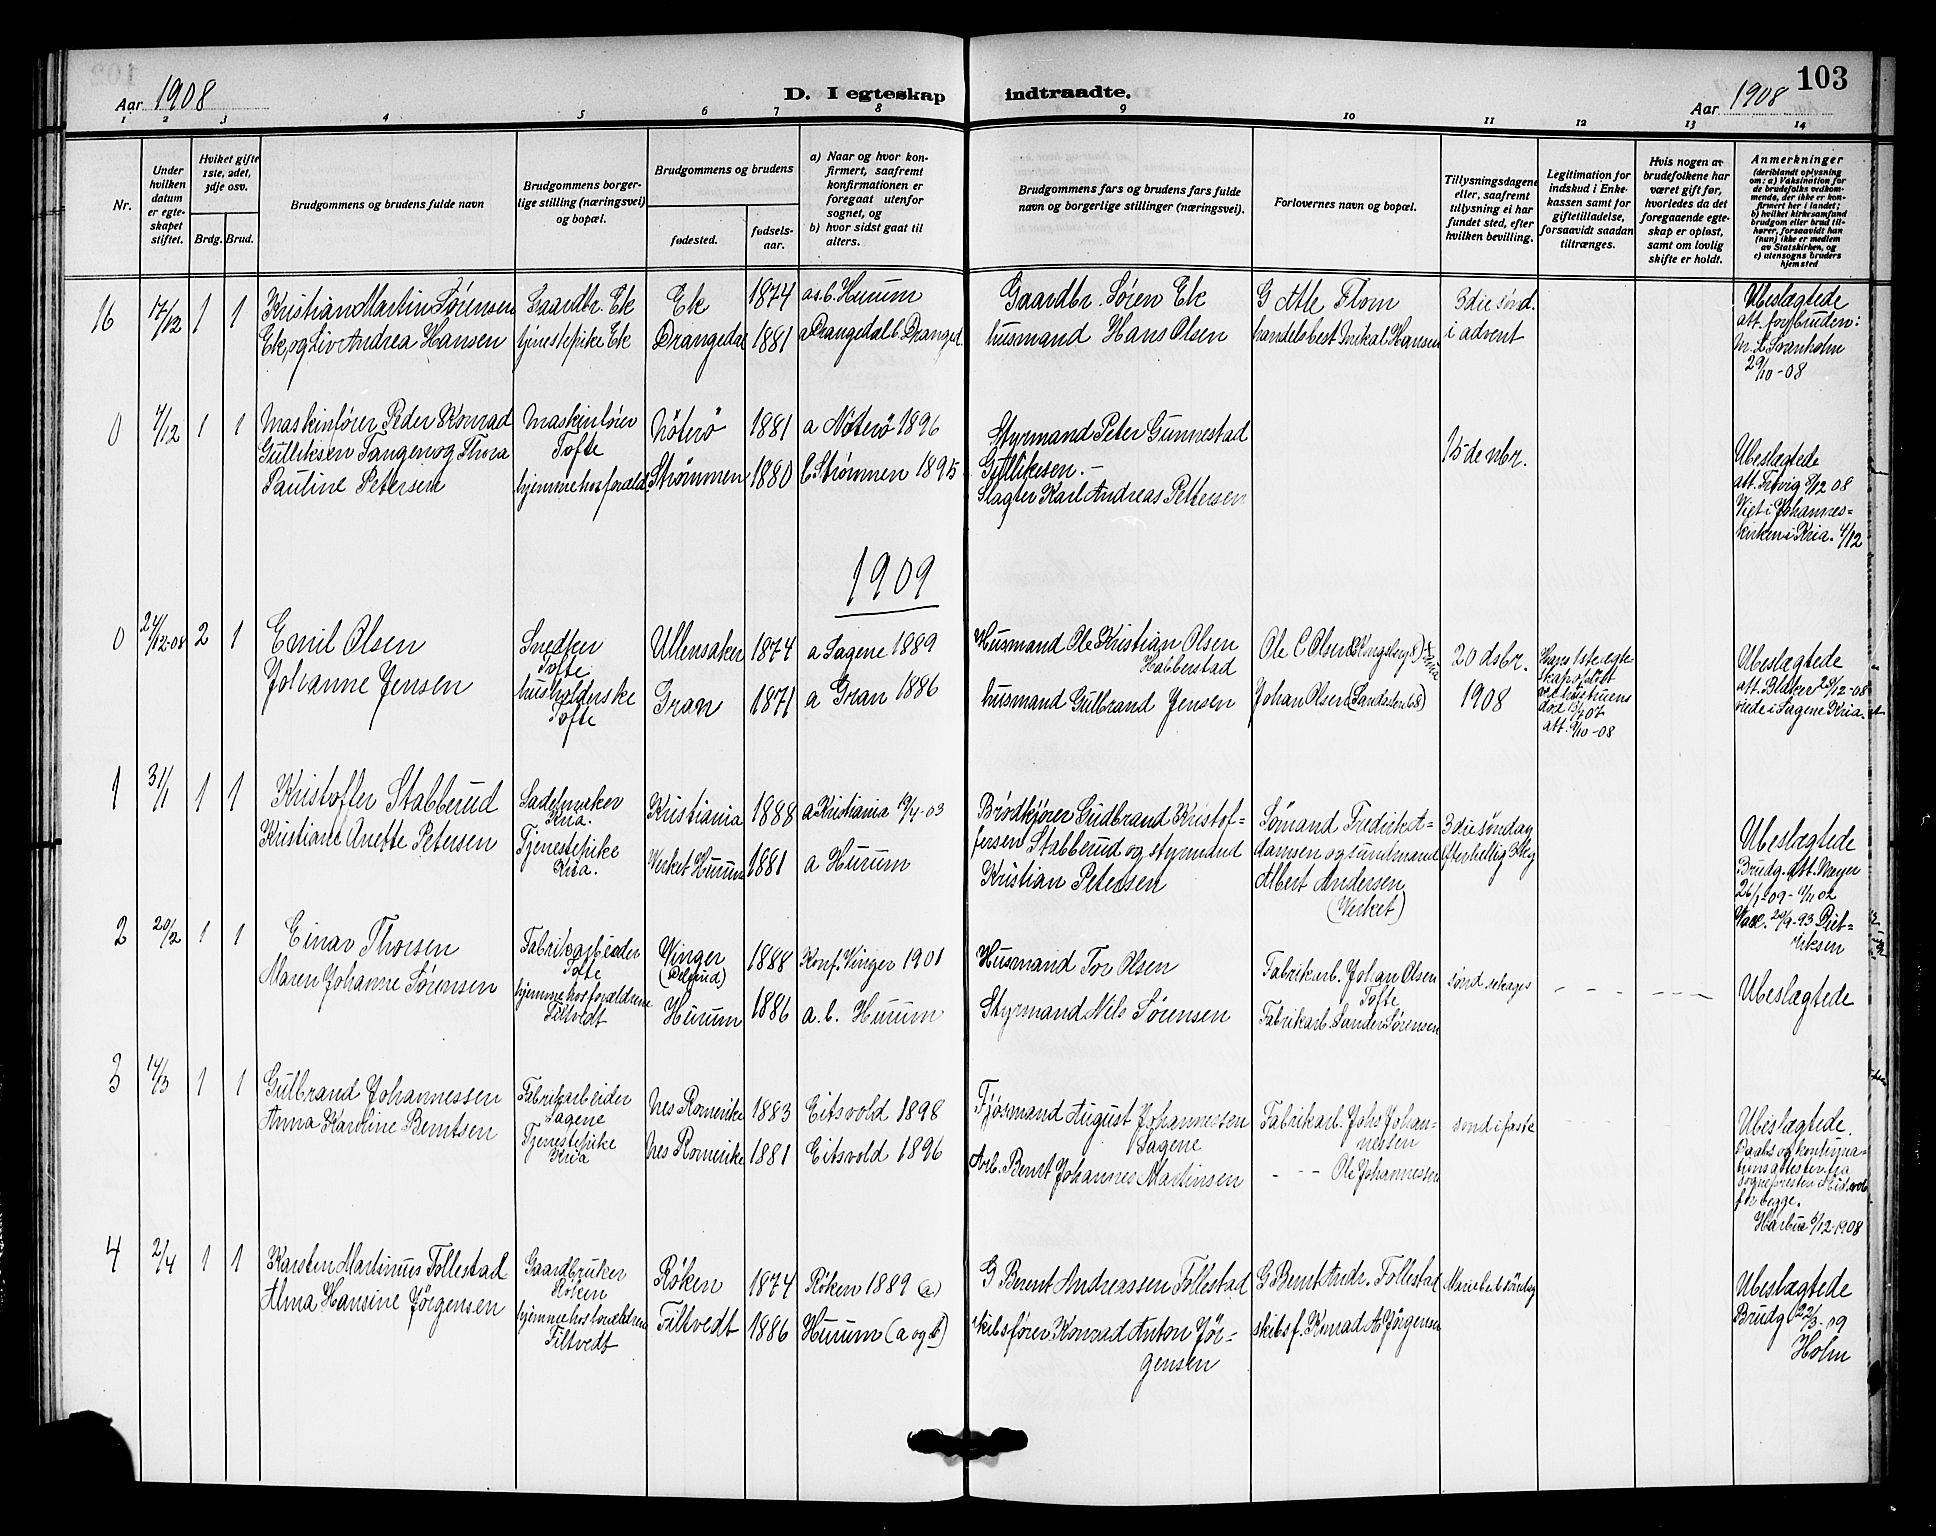 Aar 1908
D. I egteskap
indtraadte.
Aar 1908
103
1 2 3 4 5 6 7 8 9 10 11 12 13 14
Nr.
Under hvilken datum er egteskapet stiftet.
Hviket gifte 1ste, 2det, 3dje osv.
Brdg. Brud.
Brudgommens og brudens fulde navn
Brudgommens borgerlige stilling (næringsvei) og bopæl.
Brudgommens og brudens
fødested.
fødselsaar.
a) Naar og hvor konfirmert, saafremt konfirmationen er foregaat utenfor sognet, og
b) hvor sidst gaat til alters.
Brudgommens fars og brudens fars fulde navn og borgerlige stillinger (næringsvei).
Forlovernes navn og bopæl.
Tillysningsdagene eller, saafremt tillysning ei har fundet sted, efter hvilken bevilling.
Legitimation for indskud i Enkekassen samt for giftetilladelse, forsaavidt saadan tiltrænges.
Hvis nogen av brudefolkene har været gift før, hvorledes da det foregaaende egteskap er opløst, samt om lovlig skifte er holdt.
Anmerkninger
(deriblandt oplysning om: a) Vaksination for de brudefolks vedkommende, der ikke er konfirmert her i landet;
b) hvilket kirkesamfund brudgom eller brud tilhører, forsaavidt han (hun) ikke er medlem av Statskirken, og
c) utensogns bruders hjemsted
16 17/12 1 1
Kristian Martin Sørensen
Ek og Liv Andrea Hansen
Gaardbr. Ek
tjenestepike Ek
Ek 1874
Drangedal 1881
a.s.b. Hurum
a Drangedal b. Dranged.
Gaardbr. Søren Ek
husmand Hans Olsen
G Atle Flom
handelsbest Mikal Hansen
3die sønd.
i advent
Ubeslægtede
att. forbruden:
M. L. Svanholm
29/10-08
0 4/12 1 1
Maskinfører Peder Konrad
Gulliksen Tangen og Thora
Pauline Petersen
Maskinfører
Tofte
hjemme hos foræld.
Nøterø 1881
Strømmen 1880
a Nøterø 1896
b. Strømmen 1895
Styrmand Peter Gunnestad
Gullikesen. -
Slagter Karl Andreas Pettersen
15de nbr.
Ubeslægtede
att. 08
Viet i Johannes-
kirken i Kria. 4/12
1909
0 24/12-08 2 1
Emil Olsen
Johanne Jensen
Snedker
Tofte
husholderske
Tofte
Ullensaker 1874
Gran 1871
a Sagene 1889
a Gran 1886
Husmand Ole Kristian Olsen
Habberstad
husmand Gulbrand Jensen
Ole C Olsen
Johan Olsen
20 dsbr.
1908
Hans 1ste egte-
skap opløst
ved hustruens
død 13/4 07
att. 9/10-08
Ubeslægtede
att. Blaker 28/12-08
viede i Sagene Kria.
1 31/1 1 1
Kristoffer Stabberud
Kristiane Anette Petersen
Sadelmaker
Kria.
Tjenestepike
Kria.
Kristiania 1888
Verket Hurum 1881
a Kristiania 19/4-03
a Hurum
Brødkjører Gudbrand Kristof-
fersen Stabberud og styrmand
Kristian Petersen
Sømand Fredrik A-
damsen og sundmand
Albert Andersen
(Verket)
3die søndag
efter hellig 3 Kg
Ubeslægtede
Brudg. att. Mayer
26/1-09 - 1/11 02
Vacc. 20/9-93 Diet-
riksen
2 20/2 1 1
Einar Thorsen
Maren Johanne Sørensen
Fabrikarbeider
Tofte
hjemme hos forældrene
Filtvedt
Vinger 1888
Hurum 1886
Konf. Vinger 1901
a. b. Hurum
Husmand Tor Olsen
Styrmand Nils Sørensen
Fabrikarb. Johan Olsen
Tofte
Fabrikarb. Sander Sørensen
Ubeslægtede
3 14/3 1 1
Gulbrand Johannessen
Anna Karoline Berntsen
Fabrikarbeider
Sagene
Tjenestepike
Kria
Nes Romerike 1883
Nes Romerike 1881
Eitsvold 1898
Eitsvold 1896
Fjøsmand August Johannessen
Sagene
Arb. Bernt Johannes Martinsen
Fabrikarb. Johs Johan-
nessen
- - - Ole Johannessen
sønd i faste
Ubeslægtede.
Daabs og konfirma-
tionsattester fra
sognepresten i Eidsvold
for begge.
6/12-1908
4 2/4 1 1
Karsten Martinius Follestad
Alma Hansine Jørgensen
Gaardbruker
Røken
hjemme hos forældrene
Filtvedt
Røken 1874
Filtvedt 1886
Røken 1889 (a)
Hurum (a og b)
G Bernt Andreassen Follestad
skibsfører Konrad Anton Jør-
gensen
G Bernt Andr. Follestad
skibsf. Konrad A. Jørgensen
Mariebebs søndag
Ubeslægtede
Brudg (22/3-09
Holm